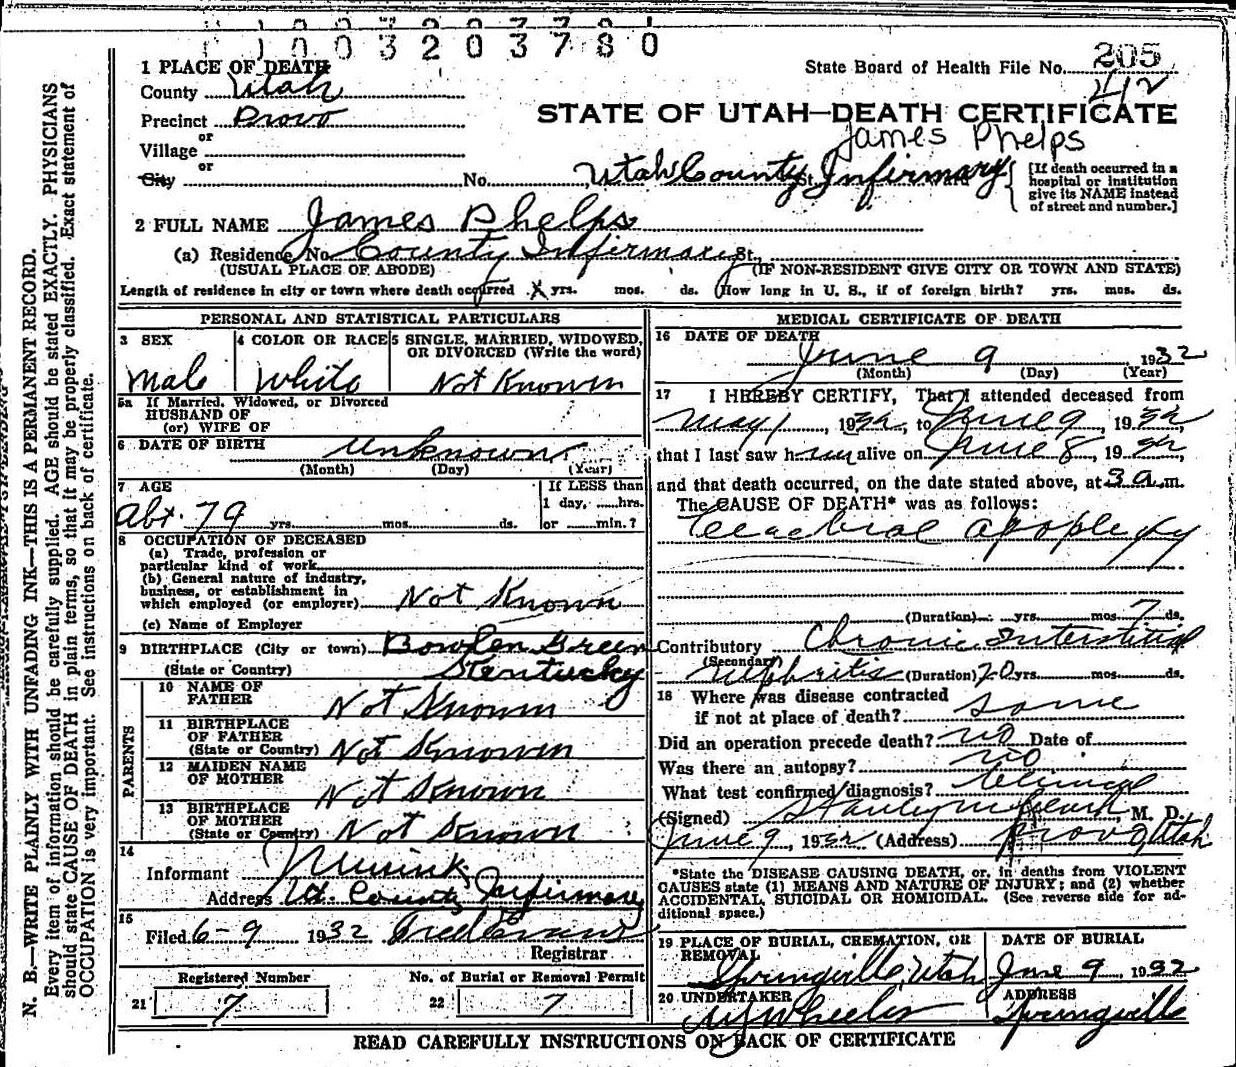 1003203780
1 PLACE OF DEATH
County Utah
Precinct Provo
or
Village
or
City No. Utah County St. Infirmary
State Board of Health File No. 205
412
STATE OF UTAH—DEATH CERTIFICATE
James Phelps
[If death occurred in a hospital or institution give its NAME instead of street and number.]
2 FULL NAME James Phelps
(a) Residence No. County Infirmary St.
(USUAL PLACE OF ABODE) (IF NON-RESIDENT GIVE CITY OR TOWN AND STATE)
Length of residence in city or town where death occurred X yrs. mos. ds. How long in U. S., if of foreign birth? yrs. mos. ds.
PERSONAL AND STATISTICAL PARTICULARS
3 SEX 4 COLOR OR RACE 5 SINGLE, MARRIED, WIDOWED, OR DIVORCED (Write the word)
Male White Not Known
5a If Married, Widowed, or Divorced
HUSBAND OF
(or) WIFE OF
6 DATE OF BIRTH Unknown
(Month) (Day) (Year)
7 AGE If LESS than
1 day, hrs.
Abt. 79 yrs. mos. ds. or min.?
8 OCCUPATION OF DECEASED
(a) Trade, profession or
particular kind of work
(b) General nature of industry,
business, or establishment in
which employed (or employer) Not Known
(c) Name of Employer
9 BIRTHPLACE (City or town) Bowlen Green
(State or Country) Kentucky
PARENTS
10 NAME OF
FATHER Not Known
11 BIRTHPLACE
OF FATHER
(State or Country) Not Known
12 MAIDEN NAME
OF MOTHER Not Known
13 BIRTHPLACE
OF MOTHER
(State or Country) Not Known
14
Informant
Address Ut. County Infirmary
15
Filed 6-9 1932 Fred Evans
Registrar
Registered Number No. of Burial or Removal Permit
21 7 22 7
MEDICAL CERTIFICATE OF DEATH
16 DATE OF DEATH
June 9 1932
(Month) (Day) (Year)
17 I HEREBY CERTIFY, That I attended deceased from
May 1, 1932, to June 9, 1932,
that I last saw him alive on June 8, 1932,
and that death occurred, on the date stated above, at 3 a.m.
The CAUSE OF DEATH* was as follows:
Cerebral apoplexy
(Duration) yrs. mos. 7 ds.
Contributory Chronic Interstitial
(Secondary) Nephritis (Duration) 20 yrs. mos. ds.
18 Where was disease contracted
if not at place of death? same
Did an operation precede death? no Date of
Was there an autopsy? no
What test confirmed diagnosis? Clinical
(Signed) Stanley M. Clark, M. D.
June 9, 1932 (Address) Provo, Utah
*State the DISEASE CAUSING DEATH, or, in deaths from VIOLENT
CAUSES state (1) MEANS AND NATURE OF INJURY; and (2) whether
ACCIDENTAL, SUICIDAL OR HOMICIDAL. (See reverse side for ad-
ditional space.)
19 PLACE OF BURIAL, CREMATION, OR REMOVAL DATE OF BURIAL
Springville, Utah June 9 1932
20 UNDERTAKER ADDRESS
Wheeler Springville
READ CAREFULLY INSTRUCTIONS ON BACK OF CERTIFICATE
N. B.—WRITE PLAINLY WITH UNFADING INK—THIS IS A PERMANENT RECORD.
Every item of information should be carefully supplied. AGE should be stated EXACTLY. PHYSICIANS
should state CAUSE OF DEATH in plain terms, so that it may be properly classified. Exact statement of
OCCUPATION is very important. See instructions on back of certificate.